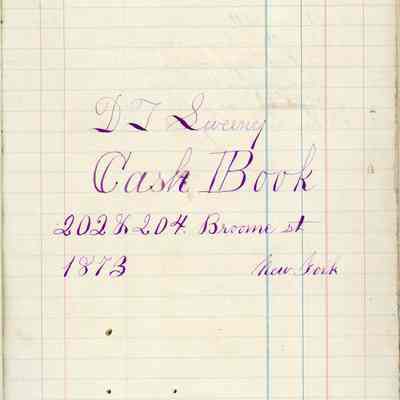 D T Sweeny
Cash Book
202 & 204. Broome st
1873 New York